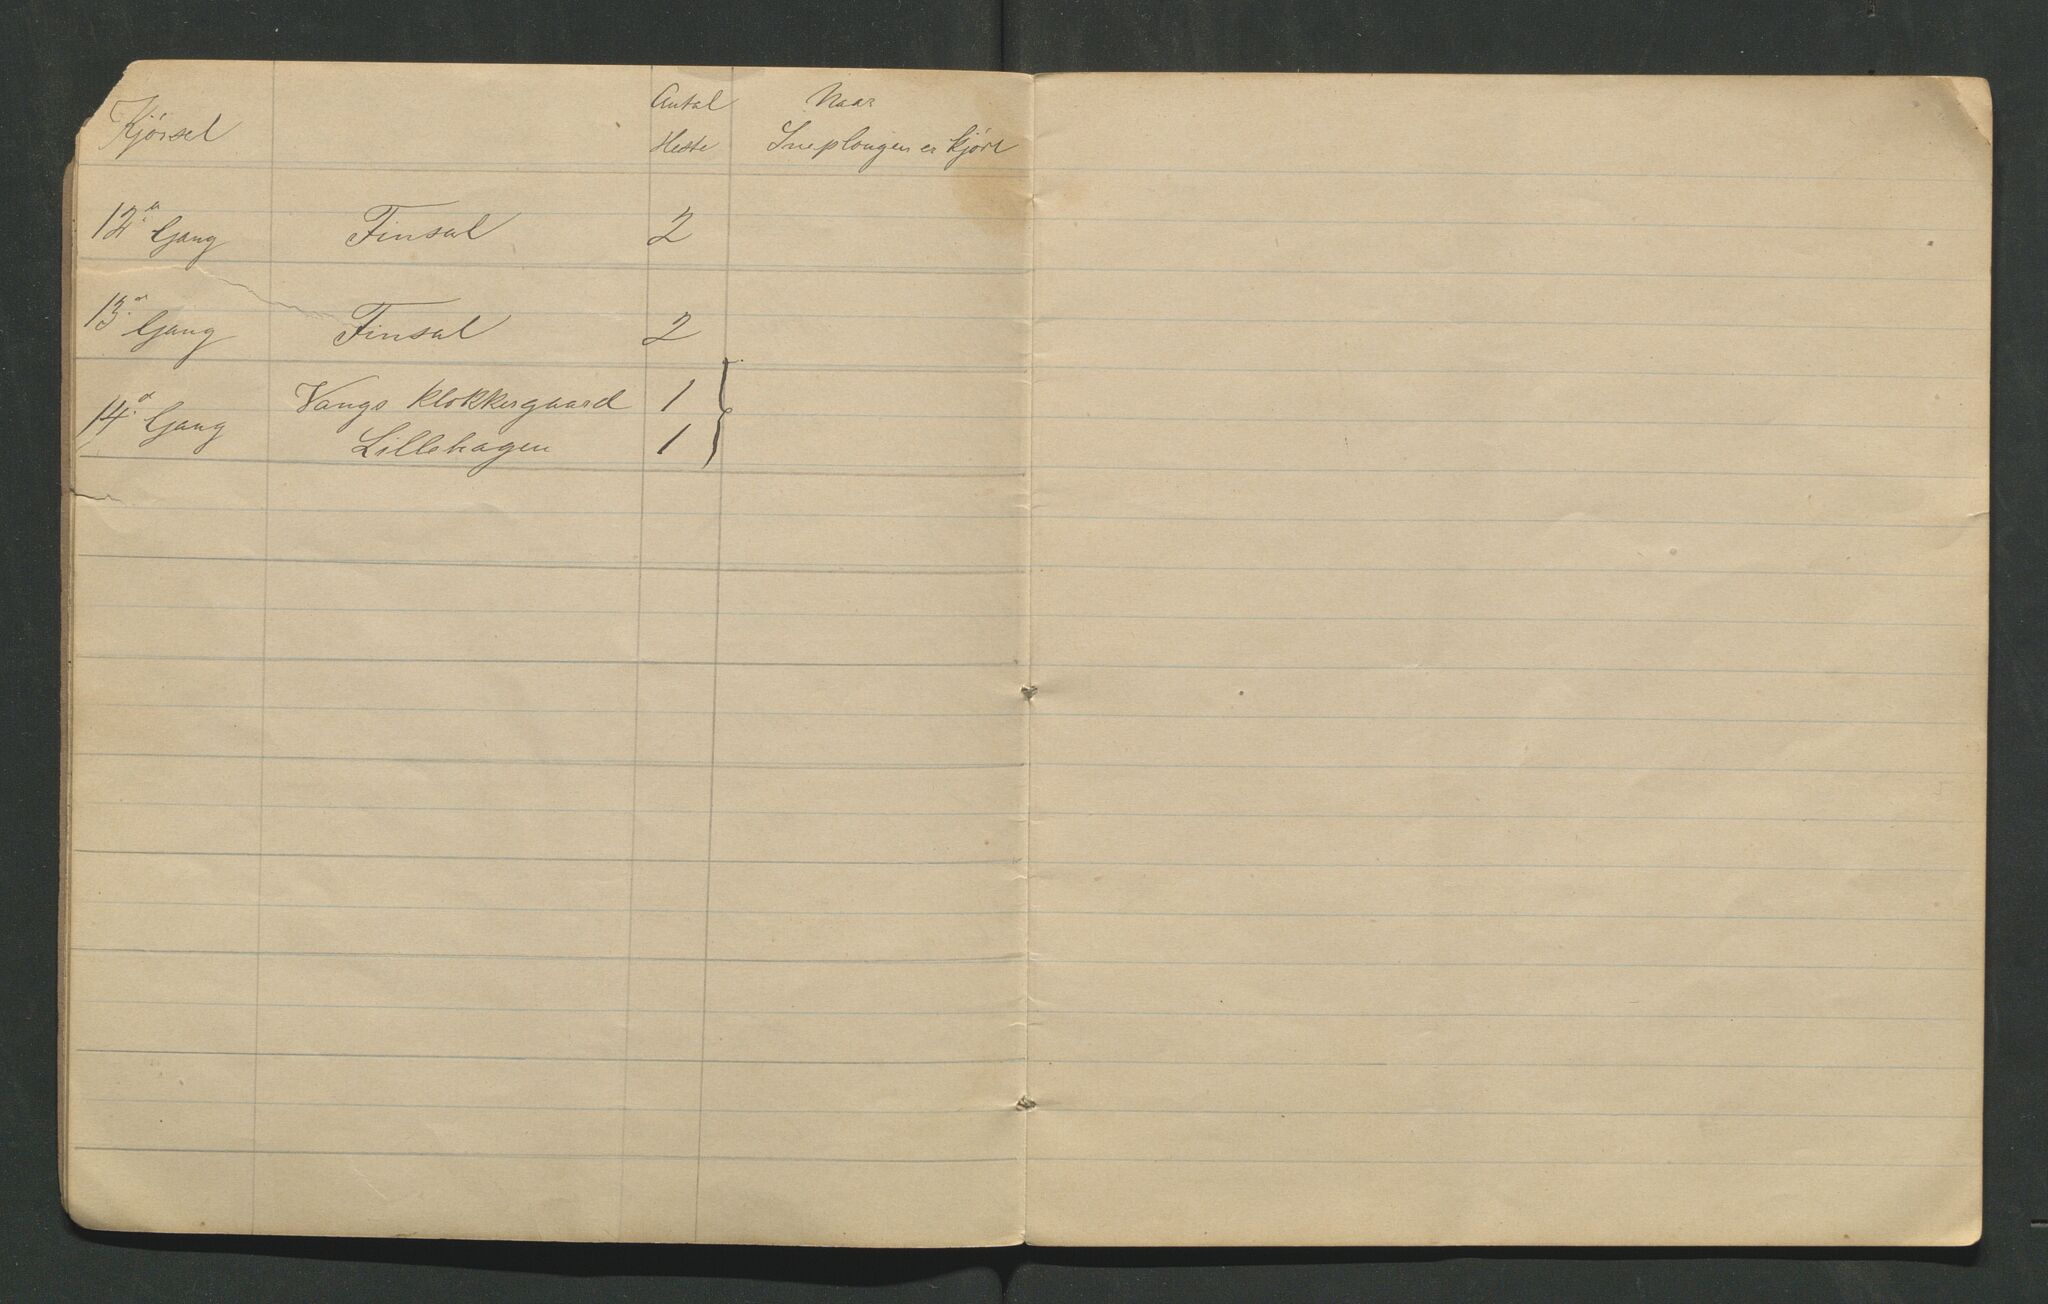 Kjørsel Antal Heste Naar Sneplougen er kjørt
12te Gang Finsal 2
13de Gang Finsal 2
14de Gang Vangs Klokkergaard 1
Lillehagen 1